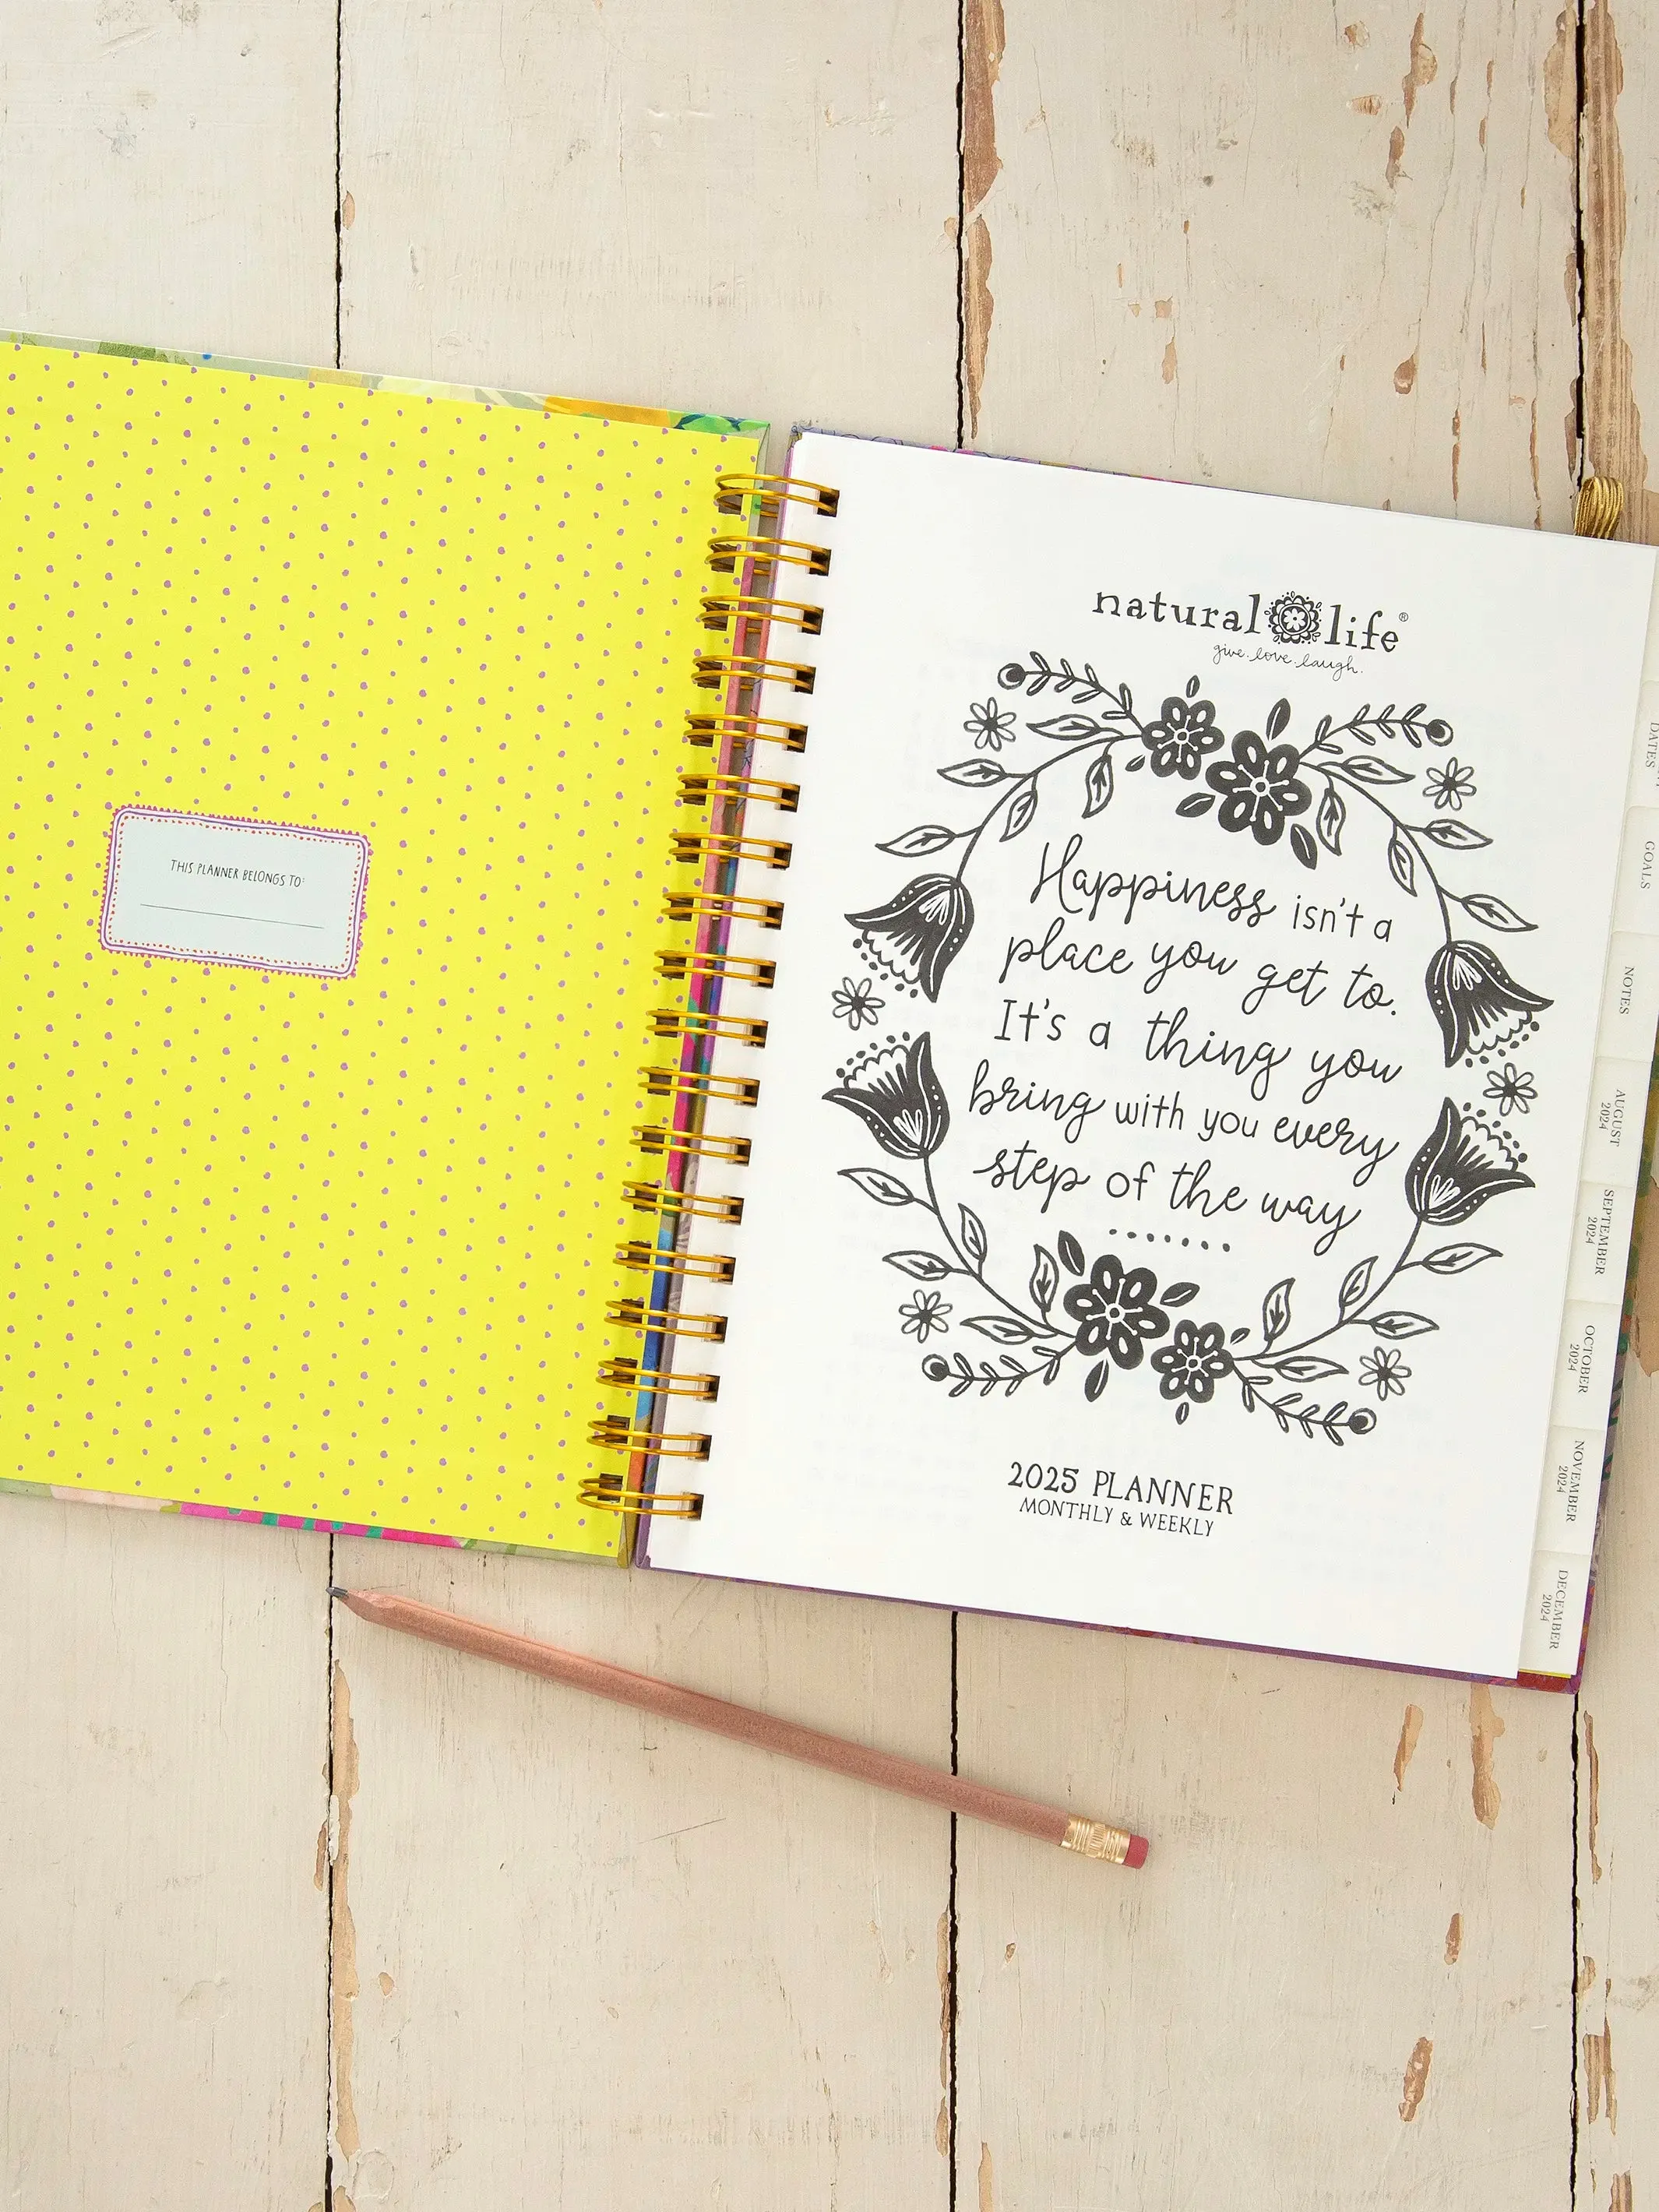 THIS PLANNER BELONGS TO:
natural life®
give. love. laugh.
Happiness isn't a
place you get to.
It's a thing you
bring with you every
step of the way
2025 PLANNER
MONTHLY & WEEKLY
DATES
GOALS
NOTES
AUGUST
2024
SEPTEMBER
2024
OCTOBER
2024
NOVEMBER
2024
DECEMBER
2024